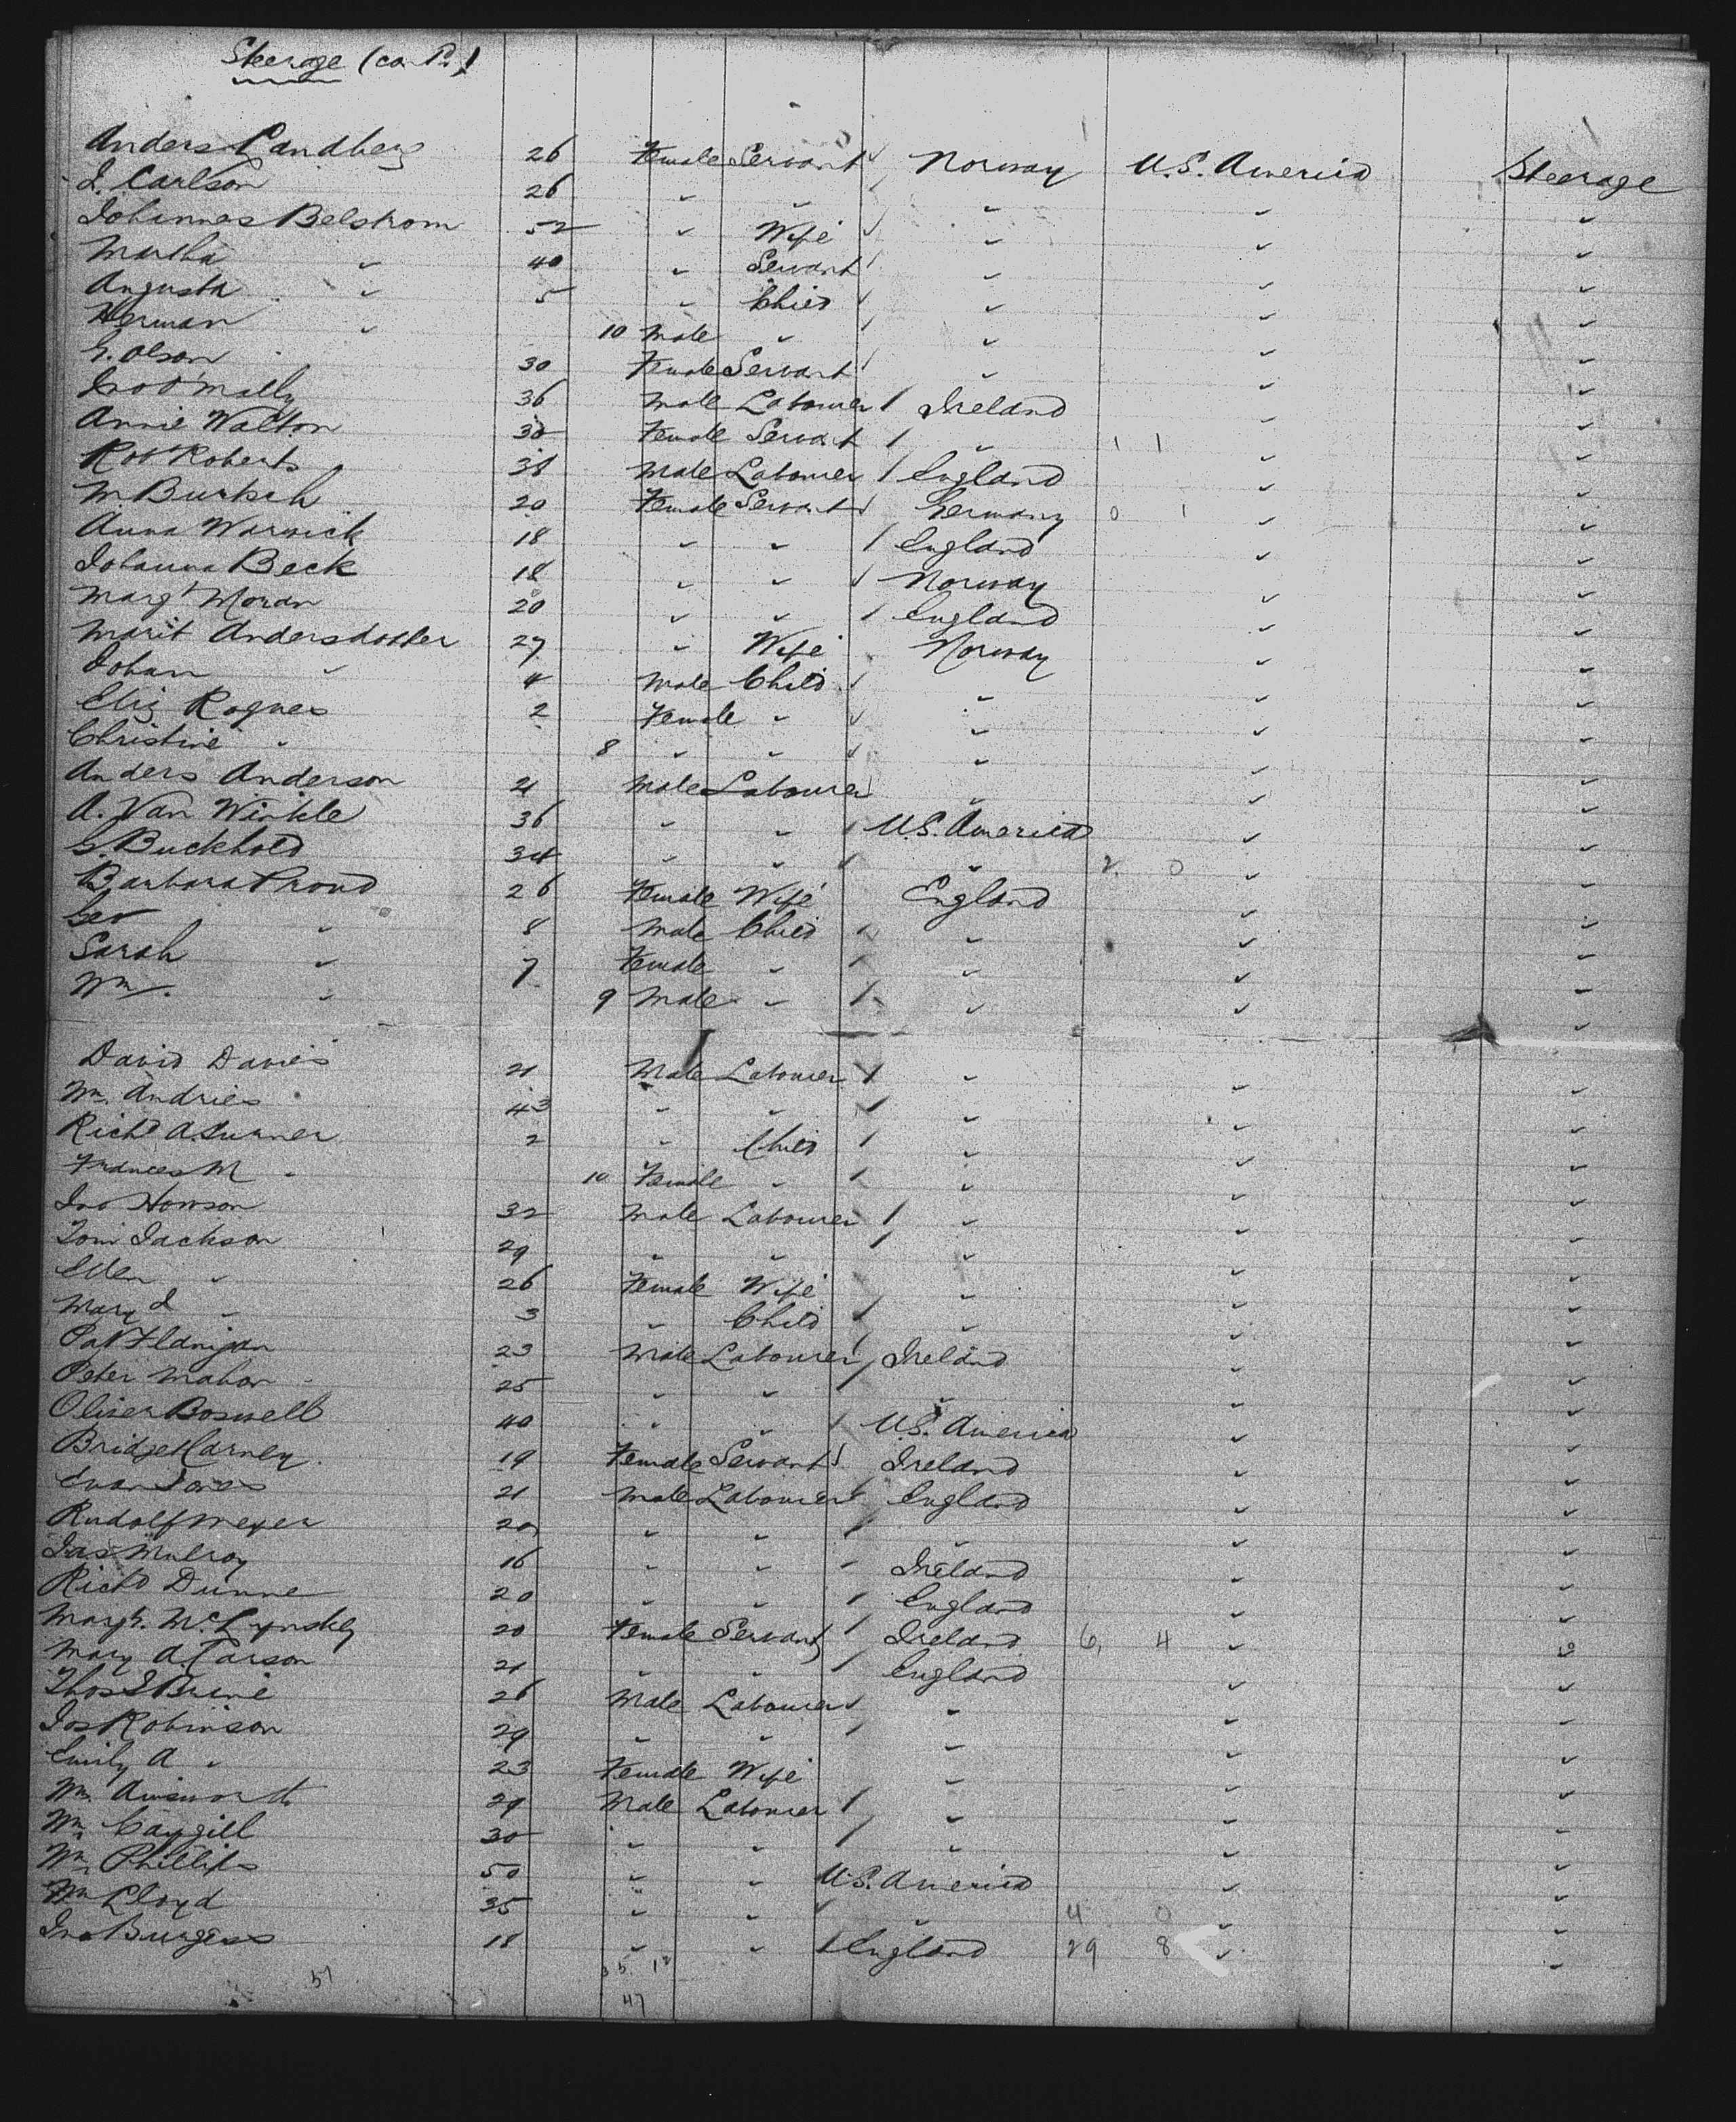 Steerage (cont.)
Anders Landberg 26 Female Servant Norway U.S. America Steerage
J. Carlson 26 " " " " "
Johannes Belstrom 52 " Wife " " "
Martha " 40 " Servant " " "
Augusta " 5 " Child " " "
Herman " 10 Male " " " "
G. Olson 30 Female Servant " " "
Jno O'Mally 36 Male Labourer Ireland " "
Annie Walton 30 Female Servant " 1 1 " "
Robt Roberts 38 Male Labourer England " "
M Burtsch 20 Female Servant Germany 0 1 " "
Anna Warwick 18 " " England " "
Johanna Beck 18 " " Norway " "
Margt Moran 20 " " England " "
Marit Andersdotter 27 " Wife Norway " "
Johan " 4 Male Child " " "
Eliz Rognes 2 Female " " " "
Christine " 8 " " " " "
Anders Anderson 21 Male Labourer " " "
A. Van Winkle 36 " " U.S. America " "
G. Buckhold 34 " " " 2 0 " "
Barbara Proud 26 Female Wife England " "
Geo " 8 Male Child " " "
Sarah " 7 Female " " " "
Wm. " 9 Male " " " "
David Davies 21 Male Labourer " " "
Wm. Andries 43 " " " " "
Richd A. Turner 2 " Child " " "
Frances M " 10 Female " " " "
Jno Howson 32 Male Labourer " " "
Tom Jackson 29 " " " " "
Ellen " 26 Female Wife " " "
Mary J " 3 " Child " " "
Pat Flanigan 23 Male Labourer Ireland " "
Peter Mahon 25 " " " " "
Oliver Boswell 40 " " U.S. America " "
Bridget Harney 19 Female Servant Ireland " "
Evan Jones 21 Male Labourer England " "
Rudolf Meyer 20 " " " " "
Jas Mulroy 16 " " Ireland " "
Richd Dunne 20 " " England " "
Margt. McLynskey 20 Female Servant Ireland 6 4 " "
Mary A. Carson 21 " " England " "
Thos J Brine 26 Male Labourer " " "
Jos Robinson 29 " " " " "
Emily A " 23 Female Wife " " "
Wm. Ainsworth 29 Male Labourer " " "
Wm Caygill 30 " " " " "
Wm Phillips 50 " " U.S. America " "
Wm Lloyd 35 " " " 4 0 " "
Jno Burgess 18 " " England 29 8 " "
51 35 12
47